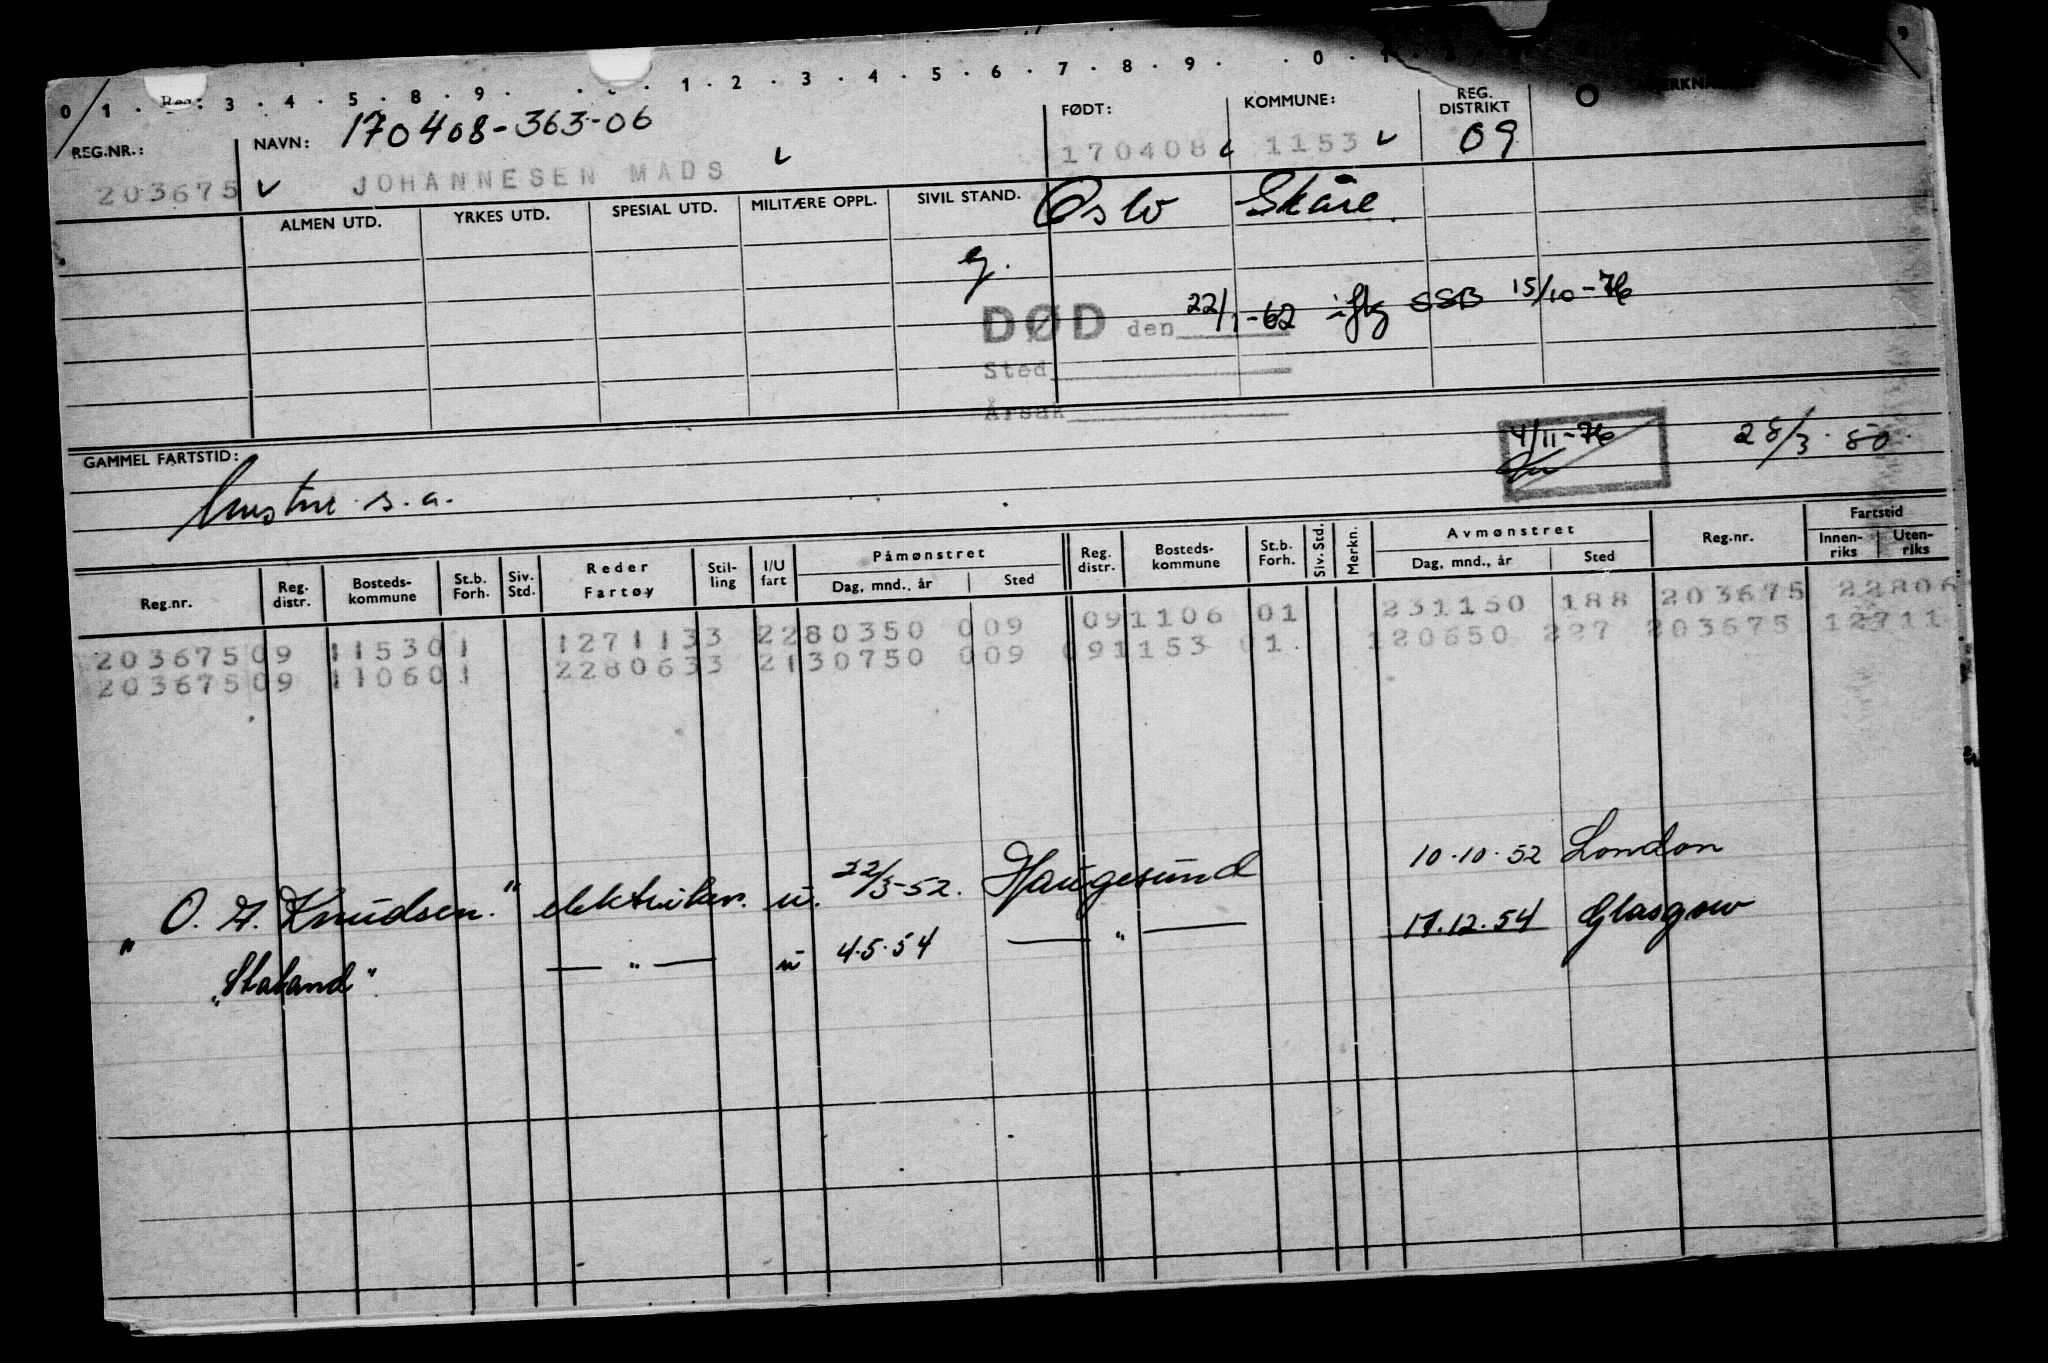 0 1 . 3 . 4 . 5 . 8 . 9 . 1 . 2 . 3 . 4 . 5 . 6 . 7 . 8 . 9 . 0 . 1
REG.NR.: NAVN: 170408-363-06 FØDT: KOMMUNE: REG. DISTRIKT
203675 JOHANNESEN MADS 170408 1153 09
ALMEN UTD. YRKES UTD. SPESIAL UTD. MILITÆRE OPPL. SIVIL STAND. Oslo Skåre.
g.
DØD den 22/1-62 iflg SSB 15/10-76
Sted
Årsak
GAMMEL FARTSTID: 4/11-76 28/3.80
s.a.
Reg.nr. Reg. distr. Bosteds- kommune St.b. Forh. Siv. Std. Reder Fartøy Stil- ling I/U fart Påmønstret Dag, mnd., år Sted Reg. distr. Bosteds- kommune St.b. Forh. Siv. Std. Merkn. Avmønstret Dag, mnd., år Sted Reg.nr. Fartstid Innen- riks Uten- riks
203675 09 1153 01 1271133 2280350 009 091106 01 231150 188 203675 22806
203675 09 1106 01 2280633 2130750 009 091153 01. 120650 227 203675 12711
"O. A. Knudsen." elektriker. u. 22/3-52. Haugesund 10.10.52 London
"Staland" — " — u 4.5.54 — " — 17.12.54 Glasgow